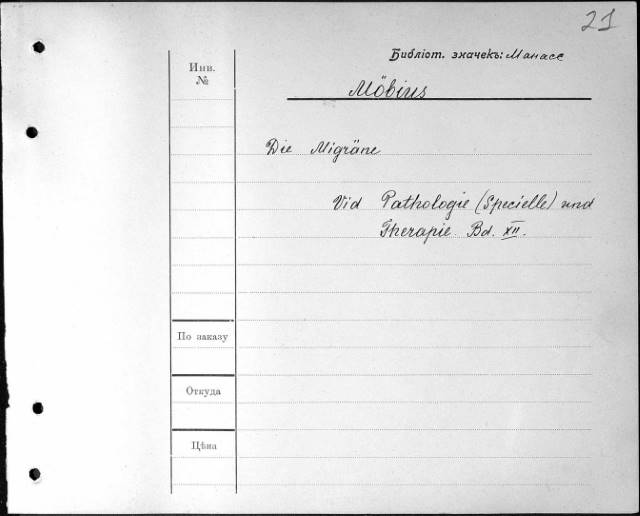 21
Библіот. значекъ: Манасс
Инв.
№
Möbius
Die Migräne
Vid Pathologie (Specielle) und
Therapie. Bd. XII.
По заказу
Откуда
Цѣна